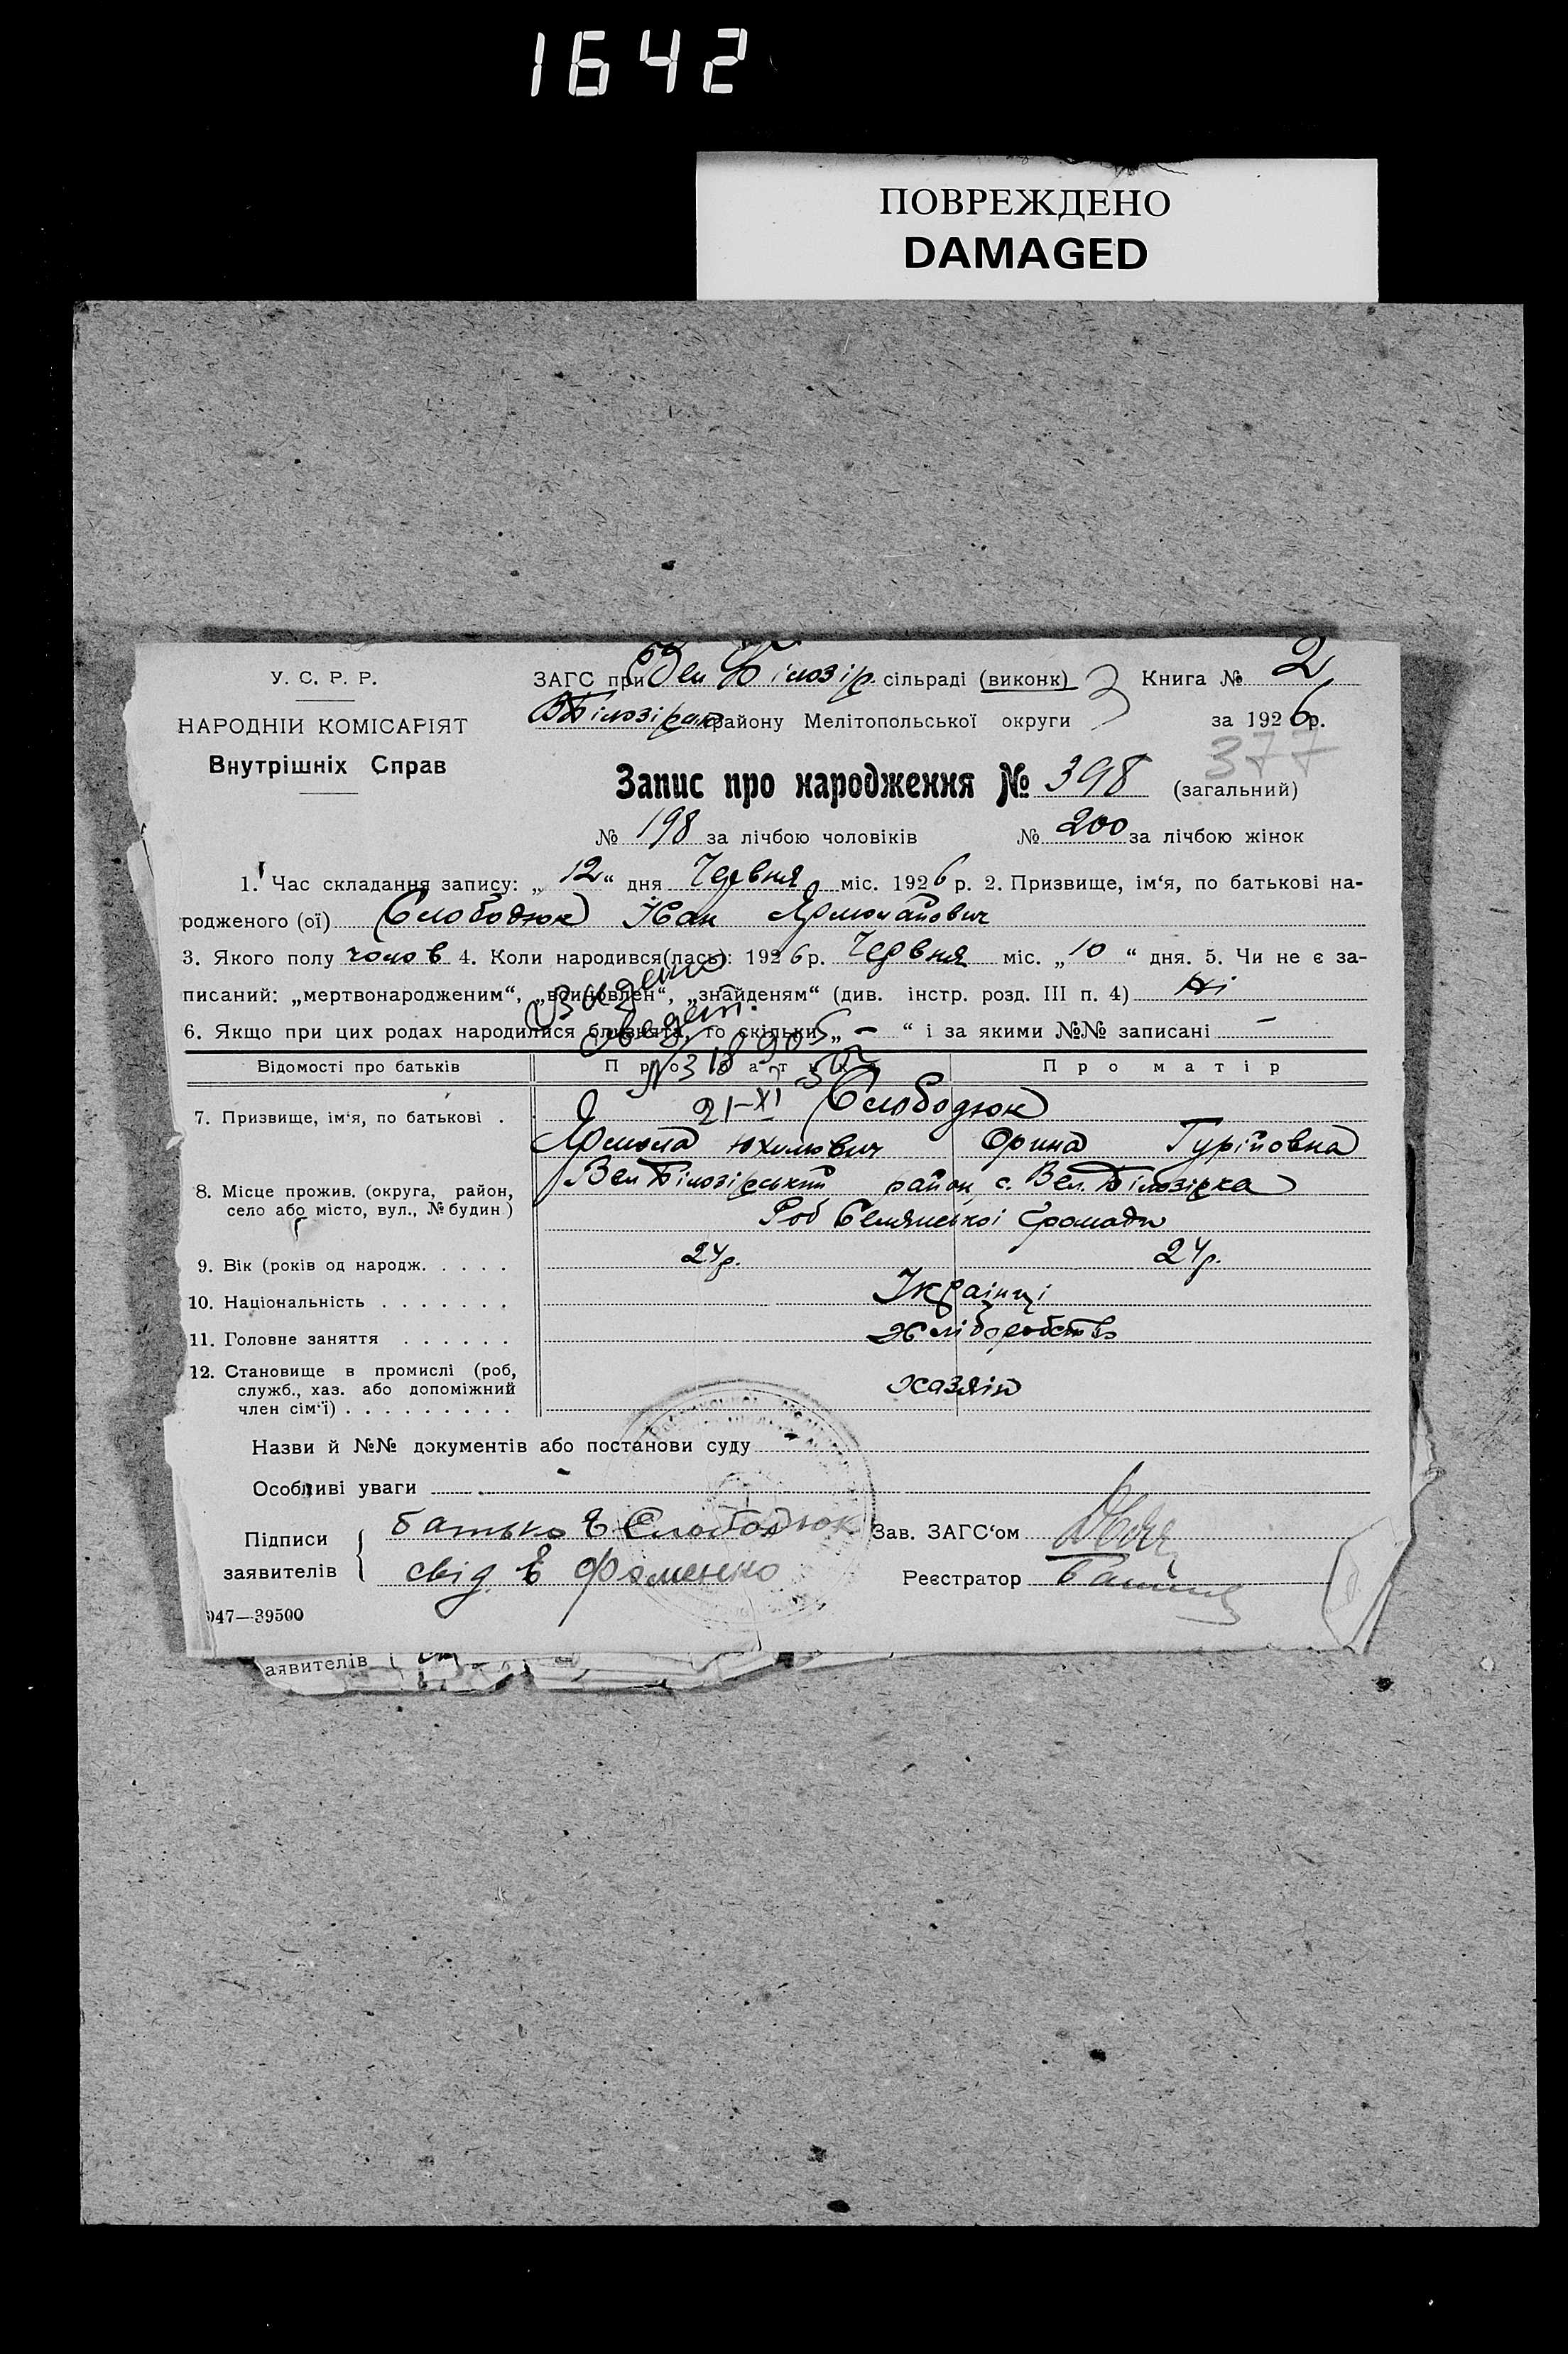 1642
ПОВРЕЖДЕНО
DAMAGED
У. С. Р. Р.
НАРОДНІЙ КОМІСАРІЯТ
Внутрішніх Справ
ЗАГС при Вел Білозір. сільраді (виконк) Книга № 2
району Мелітопольської округи за 1926 р.
377
Запис про народження № 398 (загальний)
№ 198 за лічбою чоловіків № 200 за лічбою жінок
1. Час складання запису: „12“ дня Червня міс. 1926 р. 2. Призвище, ім‘я, по батькові на-
родженого (ої) Слободюк Іван
3. Якого полу чолов 4. Коли народився(лась): 1926 р. Червня міс. „10“ дня. 5. Чи не є за-
писаний: „мертвонародженим“, „всиновлен“, „знайденям“ (див. інстр. розд. III п. 4) Ні
6. Якщо при цих родах народилися близнята, то скільки „ – “ і за якими №№ записані –
Відомості про батьків Про батька Про матір
21–XI
7. Призвище, ім‘я, по батькові . Слободюк
Орина Гурійовна
8. Місце прожив. (округа, район,
село або місто, вул., № будин.)
Вел Білозірський район с. Вел. Білозірка
громади
9. Вік (років од народж. . . . . 24р. 24р.
10. Національність . . . . . . . Українці
11. Головне заняття . . . . . . хліборобство
12. Становище в промислі (роб,
служб., хаз. або допоміжний
член сім‘ї) . . . . . . . . . хазяін
Назви й №№ документів або постанови суду –
Особливі уваги –
Підписи
заявителів
батько Е Слободюк
свід Е Фоменко
Зав. ЗАГС‘ом
Реєстратор
047—39500
аявителів